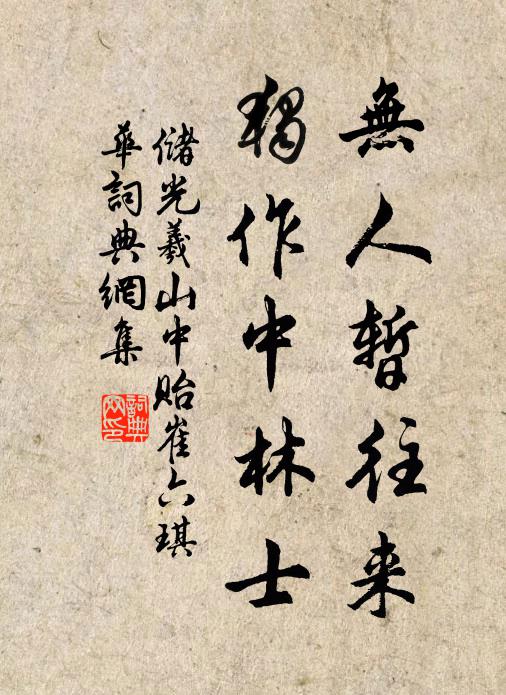 無人暫往来
獨作中林士
儲光羲山中貽崔六琪
華詞典網集
詞典網印